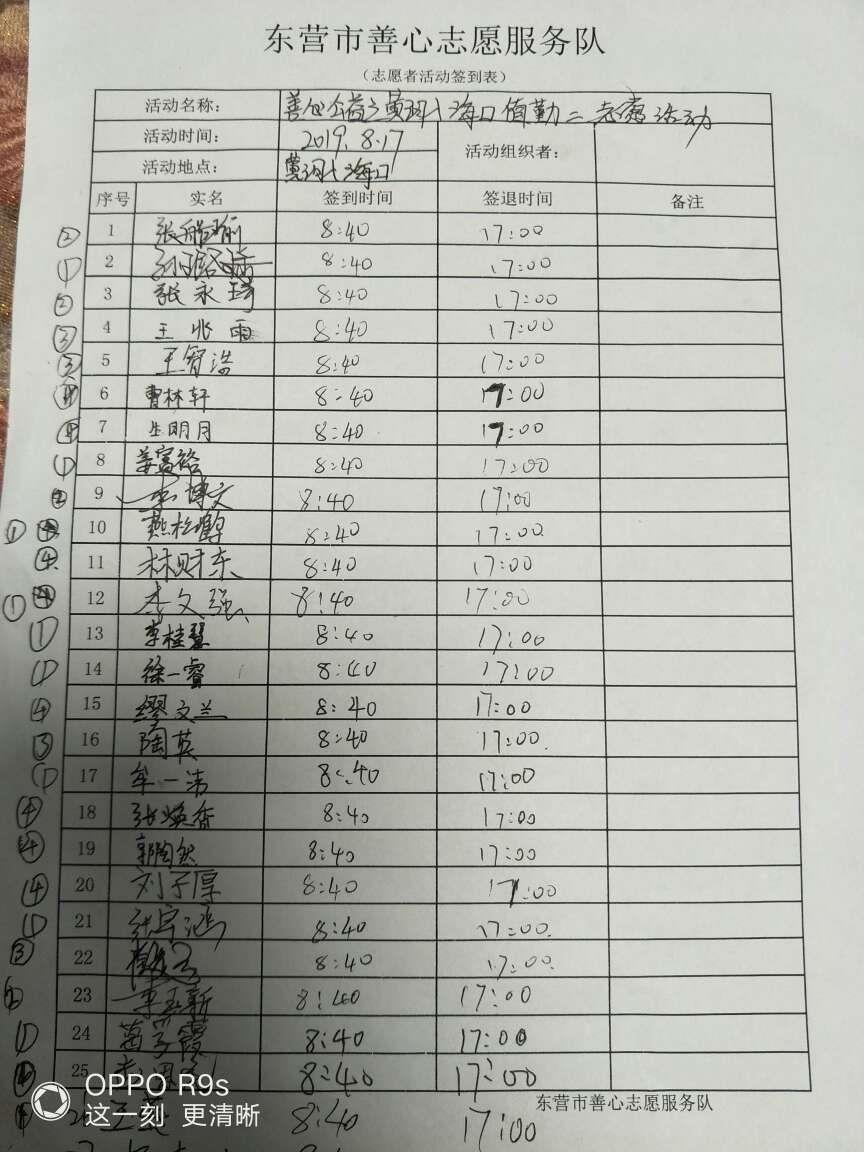 东营市善心志愿服务队
（志愿者活动签到表）
活动名称： 善心公益之黄河入海口值勤二志愿活动
活动时间： 2019.8.17 活动组织者：
活动地点： 黄河入海口
序号 实名 签到时间 签退时间 备注
② 1 张 8:40 17:00
① 2 8:40 17:00
② 3 张永琦 8:40 17:00
③ 4 王兆雨 8:40 17:00
③ 5 王智浩 8:40 17:00
6 曹林轩 8:40 17:00
④ 7 生明月 8:40 17:00
① 8 姜富裕 8:40 17:00
② 9 李博文 8:40 17:00
① 10 燕松 8:40 17:00
④ 11 林财东 8:40 17:00
① 12 李文强 8:40 17:00
① 13 李桂慧 8:40 17:00
① 14 徐一睿 8:40 17:00
④ 15 缪文兰 8:40 17:00
③ 16 陶英 8:40 17:00
① 17 牟一 8:40 17:00
④ 18 张焕香 8:40 17:00
④ 19 郭陶然 8:40 17:00
④ 20 刘子厚 8:40 17:00
① 21 张宇涵 8:40 17:00
③ 22 8:40 17:00
23 李玉新 8:40 17:00
① 24 葛学霞 8:40 17:00
25 8:40 17:00
东营市善心志愿服务队
王英 8:40 17:00
OPPO R9s
这一刻 更清晰